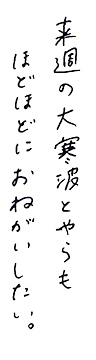 来週の大寒波とやらも
ほどほどにおねがいしたい。